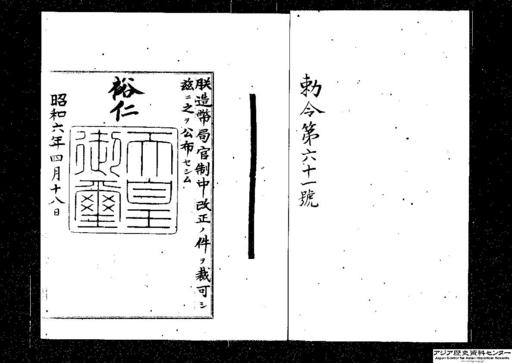 勅令第六十一號
朕造幣局官制中改正ノ件ヲ裁可シ
茲ニ之ヲ公布セシム
裕仁
天皇
御璽
昭和六年四月十八日
アジア歴史資料センター
Japan Center for Asian Historical Records